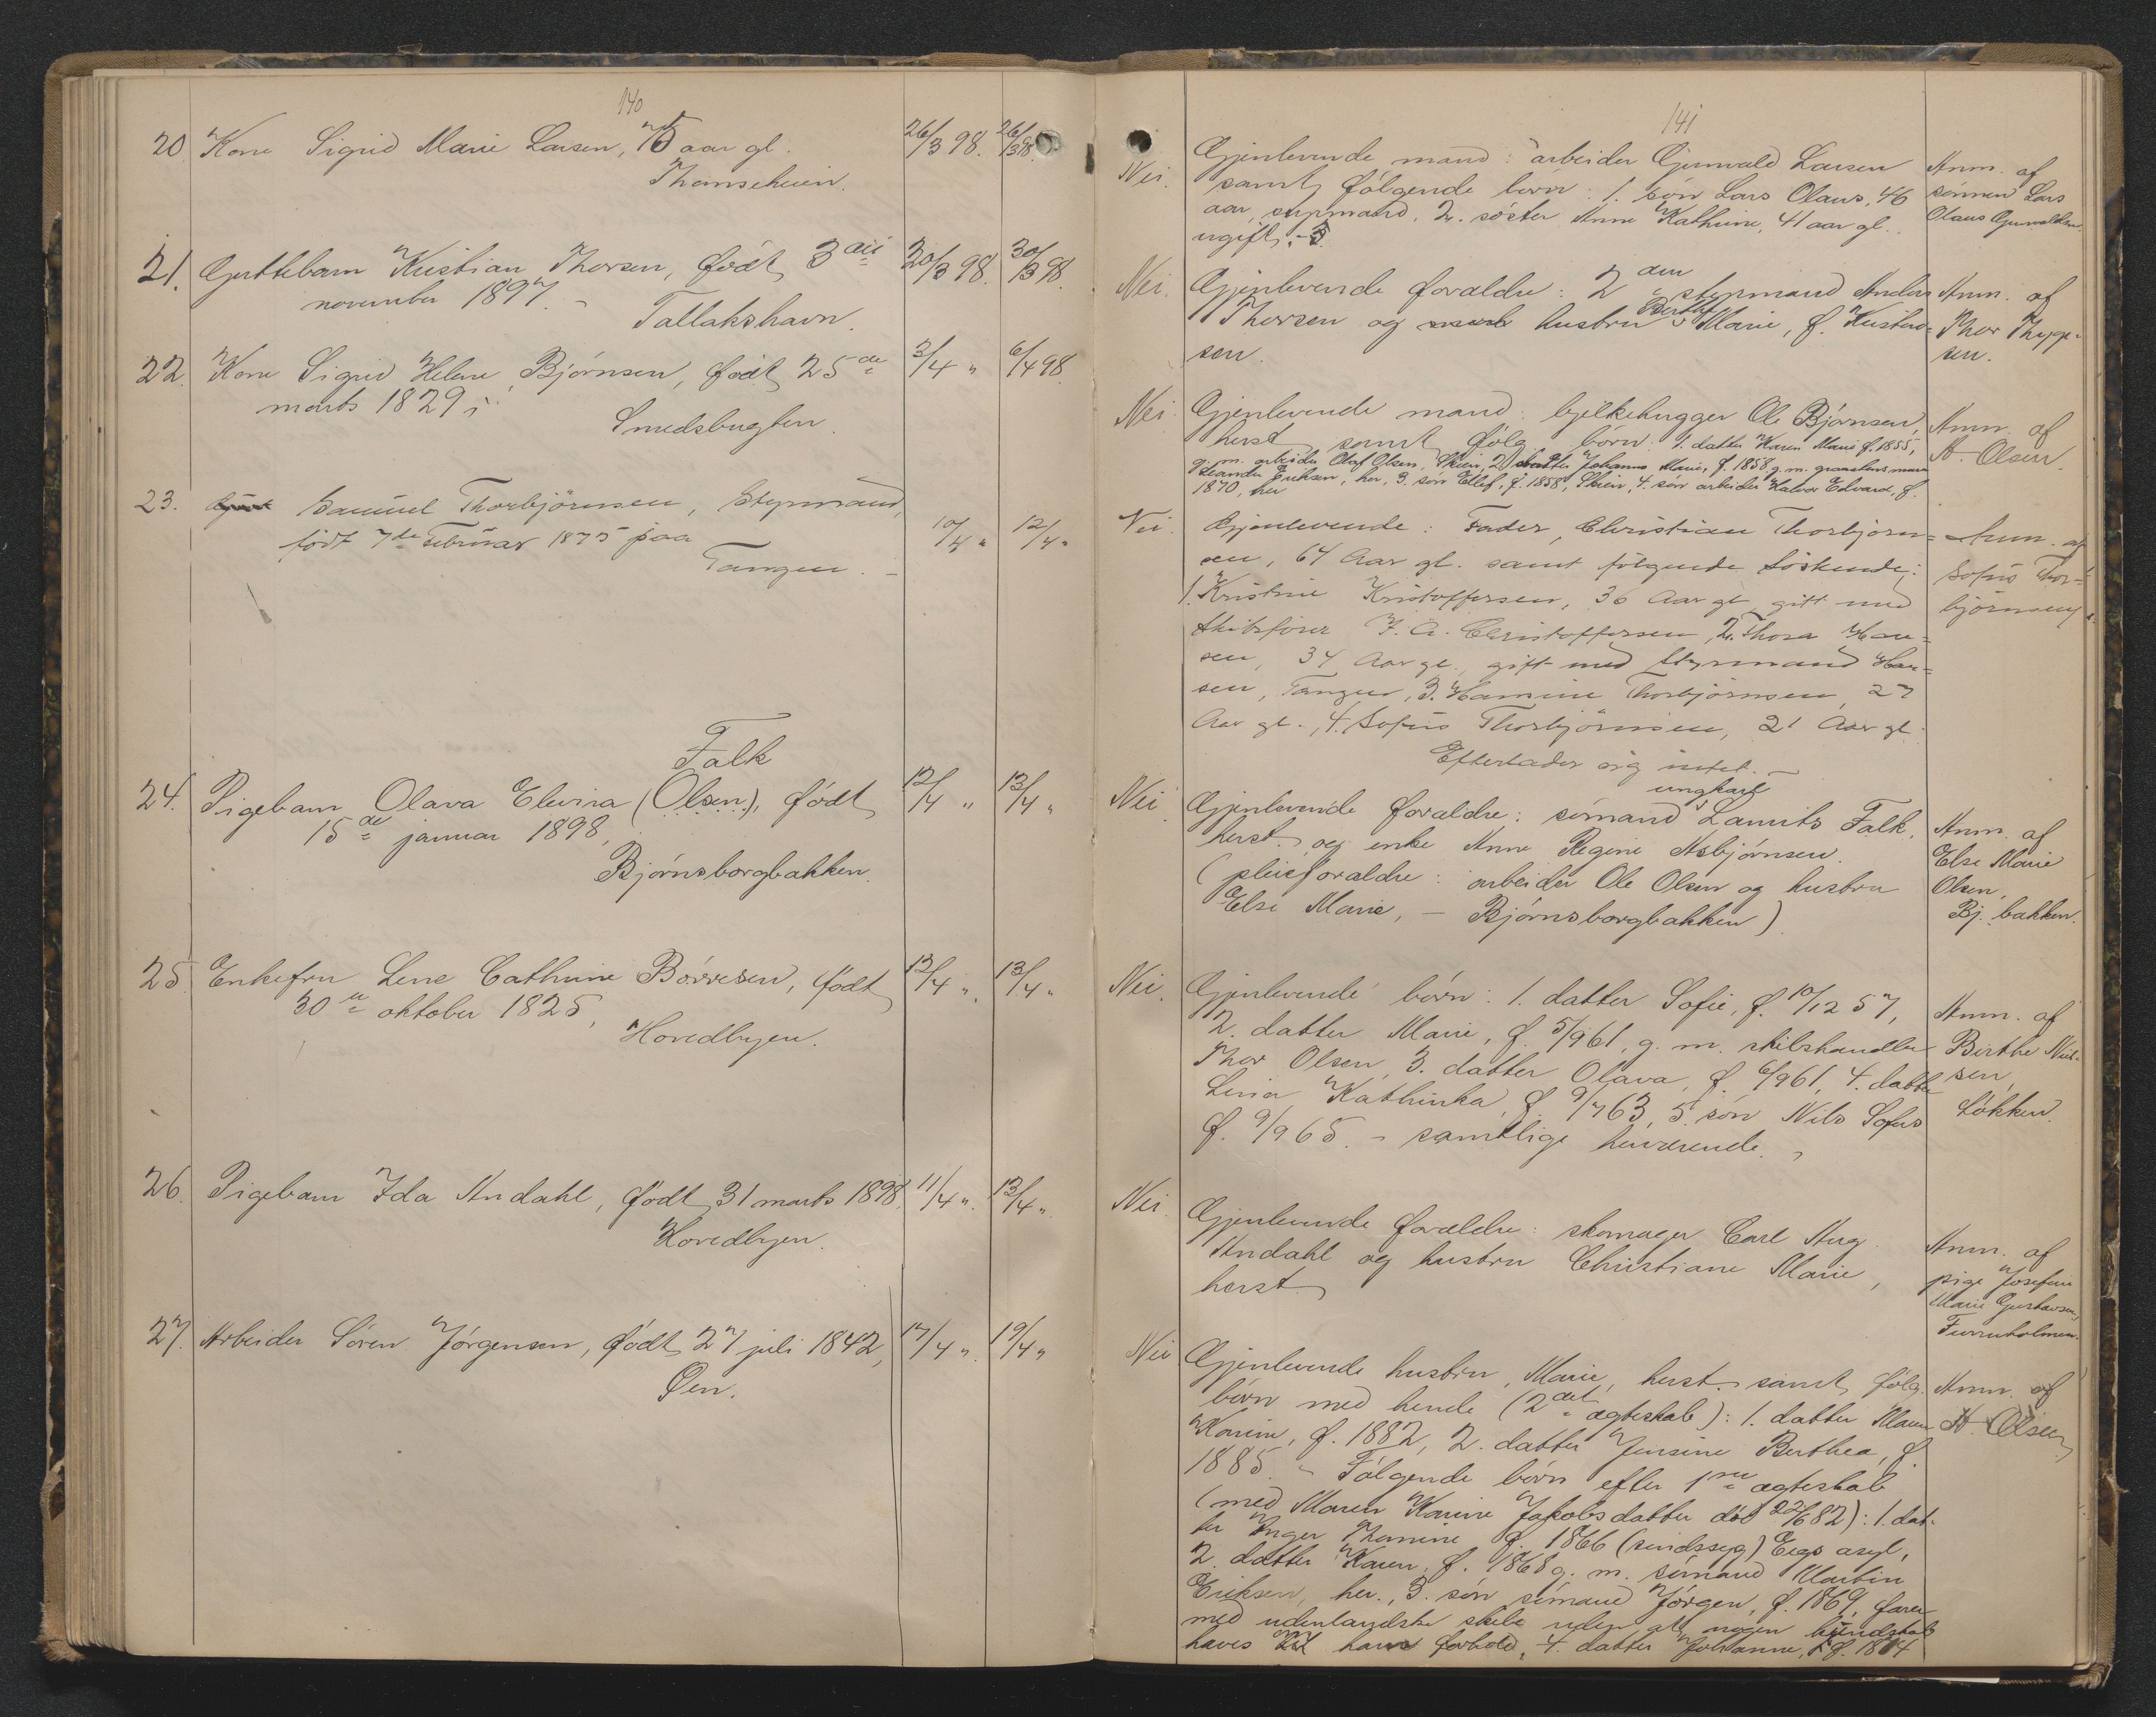 140
20. Kone Sigrid Marie Larsen, 75 aar gl. 26/3 98. 26/3 98.
Thomseheien.
21. Guttebarn Kristian Thorsen, født 3die 20/3 98. 30/3 98.
november 1897. -
Tallakshavn.
22. Kone Sigrid Helene Bjørnsen, født 25de 3/4 " 6/4 98
marts 1829,
Smedsbugten.
23. Samuel Thorbjörnsen, Styrmand,
født 7de Februar 1875 paa 10/4 " 12/4 "
Tangen. -
Falk
24. Pigebarn Olava Elevira (Olsen), født 12/4 " 13/4 "
15de januar 1898,
Bjørnsborgbakken.
25. Enkefru Lene Cathrine Børresen, født 12/4 " 13/4 "
30te oktober 1825,
Hovedbyen.
26. Pigebarn Ida Andahl, født 31 marts 1898. 11/4 " 13/4 "
Hovedbyen.
27. Arbeider Søren Jørgensen, født 27 juli 1842, 17/4 " 19/4 "
Øen.
141
Nei. Gjenlevende mand: arbeider Gjerunald Larsen Anm. af
samt følgende børn: 1. søn Lars Olaus, 46 sønnen Lars
aar, styrmand, 2. søster Anne Kathrine, 41 aar gl. Olaus Gjerunaldsen.
ugift. -
Nei. Gjenlevende forældre: 2den styrmand Anders Anm. af
Thorsen og hustru Berthe Marie, f. Kristen- Thor
sen.
Nei. Gjenlevende mand: bjelkehugger Ole Bjørnsen, Anm. af
herst samt følg. børn: 1. datter Karen Marie f. 1855, A. Olsen.
g. m. arbeider Olaf Olsen, Skien, 2) datter Johanne Marie, f. 1858, g. m.
Eriksen, her, 3. søn Ellef, f. 1858, Skien, 4. søn arbeider Halvor Edvard, f.
1870, her
Nei Gjenlevende: Fader, Christian Thorbjørn= Anm. af
sen, 64 Aar gl. samt følgende Söskende: Sofus Thor=
1. Kristine Kristoffersen, 36 Aar gl, gift med björnsen.
Skibsfører F. A. Christoffersen, 2. Thora Han=
sen, 34 Aar gl., gift med Styrmand Han=
sen, Tangen, 3. Hansine Thorbjörnsen, 27
Aar gl., 4. Sofus Thorbjörnsen, 21 Aar gl.
Efterlader sig intet. -
ungkarl
Nei. Gjenlevende forældre: sømand Laurits Falk, Anm. af
herst. og enke Anne Regine Asbjørnsen. Else Marie
(pleieforældre: arbeider Ole Olsen og hustru Olsen,
Else Marie, - Bjørnsborgbakken) Bj. bakken.
Nei. Gjenlevende børn: 1. datter Sofie, f. 10/12 57, Anm. af
2. datter Marie, f. 5/9 61, g. m. skibshandler Birthe Niel-
Thor Olsen, 3. datter Olava, f. 6/9 61, 4. datter sen,
Lina Kathinka, f. 9/7 63, 5. søn Nils Sofus Løkken.
f. 9/9 65. - samtlige herværende.
Nei. Gjenlevende forældre: skomager Carl Aug. Anm. af
Andahl og hustru Christiane Marie, pige Josefine
herst. Marie Gustavsen,
Furruholmen.
Nei Gjenlevende hustru, Marie, herst. samt følg. Anm. af
børn med hende (2det ægteskab): 1. datter Maren A. Olsen
Karine, f. 1882, 2. datter Jensine Berthea, f.
1885. - Følgende børn efter 1ste ægteskab
(med Maren Karine Jakobsdatter død 22/6 82): 1. dat-
ter Inger Thomine f. 1866 (sindssyg) Eegs asyl,
2. datter Karen, f. 1868 g. m. sømand Martin
Eriksen, her., 3. søn sømand Jørgen, f. 1869, farer
med udenlandske skibe uden at nogen kjendskab
haves om hans forhold, 4. datter Johanne, f. 1874